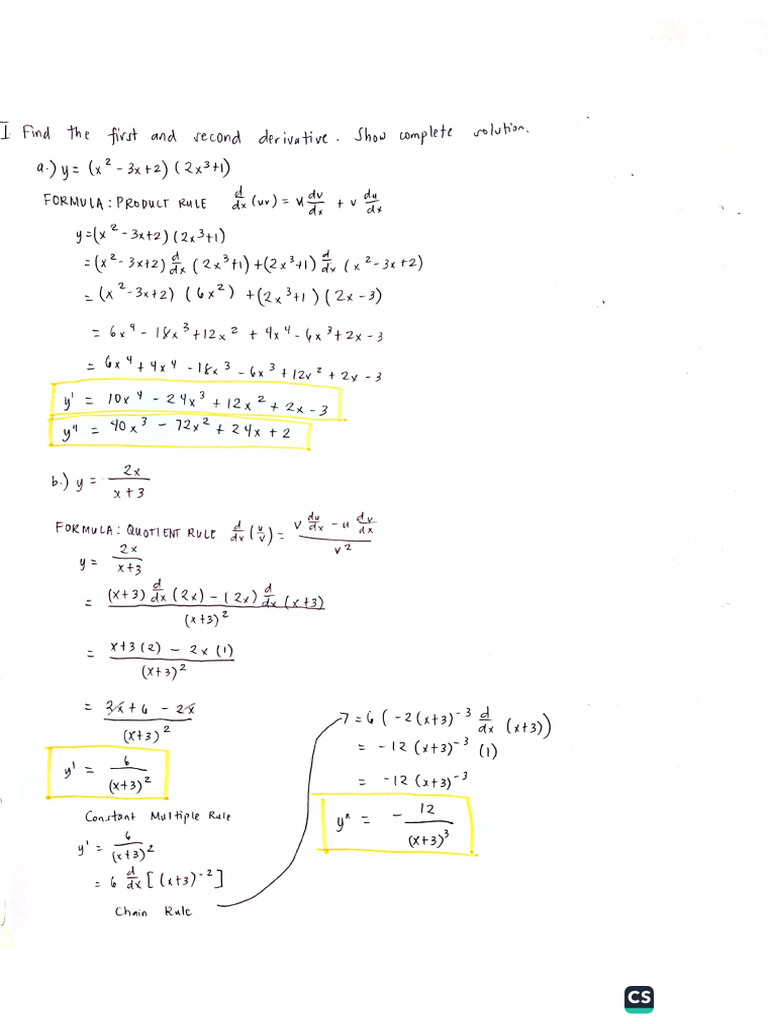 I. Find the first and second derivative. Show complete solution.
a.) y = (x² - 3x + 2) (2x³+1)
FORMULA: PRODUCT RULE d/dx (uv) = u dv/dx + v du/dx
y = (x² - 3x + 2) (2x³+1)
= (x² - 3x + 2) d/dx (2x³+1) + (2x³+1) d/dx (x² - 3x + 2)
= (x² - 3x + 2) (6x²) + (2x³+1) (2x - 3)
= 6x⁴ - 18x³ + 12x² + 4x⁴ - 6x³ + 2x - 3
= 6x⁴ + 4x⁴ - 18x³ - 6x³ + 12x² + 2x - 3
y' = 10x⁴ - 24x³ + 12x² + 2x - 3
y" = 40x³ - 72x² + 24x + 2
b.) y = 2x / x + 3
FORMULA: QUOTIENT RULE d/dx (u/v) = v du/dx - u dv/dx / v²
y = 2x / x+3
= (x+3) d/dx (2x) - (2x) d/dx (x+3) / (x+3)²
= x+3 (2) - 2x (1) / (x+3)²
= 2x + 6 - 2x / (x+3)²
y' = 6 / (x+3)²
Constant Multiple Rule
y' = 6 / (x+3)²
= 6 d/dx [(x+3)⁻²]
Chain Rule
= 6 (-2(x+3)⁻³ d/dx (x+3))
= -12 (x+3)⁻³ (1)
= -12 (x+3)⁻³
y" = - 12 / (x+3)³
CS